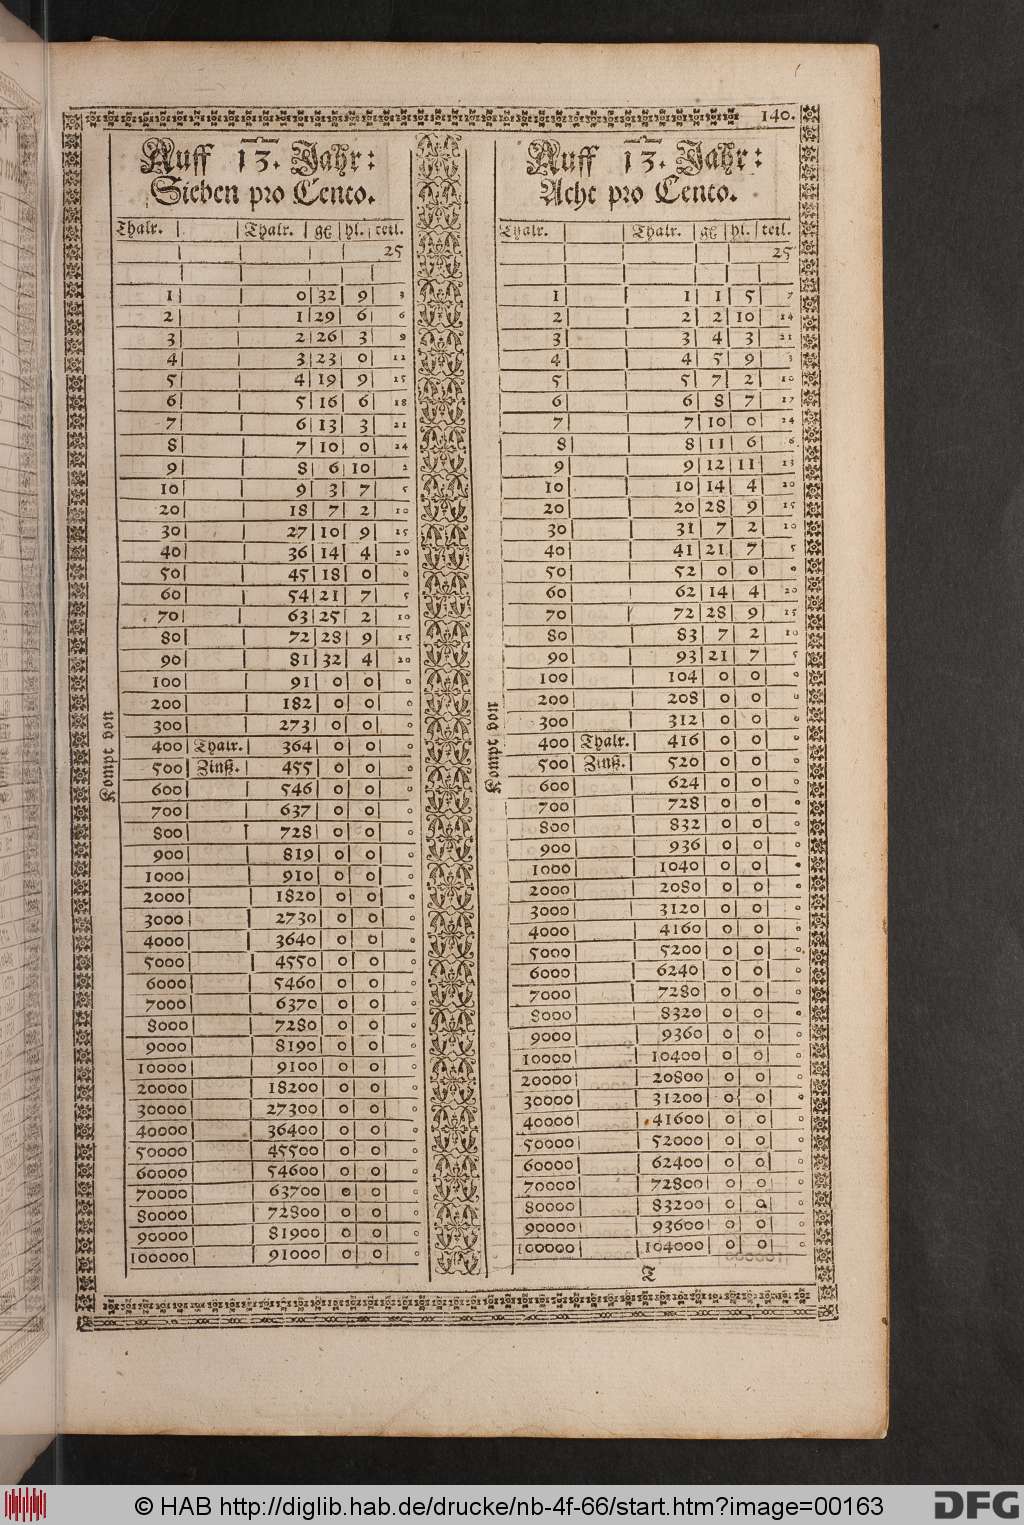 140.
Auff 13. Jahr:
Sieben pro Cento.
Thalr. | | Thalr. | gß | hl. | teil.
25
1 | 0 | 32 | 9 | 3
2 | 1 | 29 | 6 | 6
3 | 2 | 26 | 3 | 9
4 | 3 | 23 | 0 | 12
5 | 4 | 19 | 9 | 15
6 | 5 | 16 | 6 | 18
7 | 6 | 13 | 3 | 21
8 | 7 | 10 | 0 | 24
9 | 8 | 6 | 10 | 2
10 | 9 | 3 | 7 | 5
20 | 18 | 7 | 2 | 10
30 | 27 | 10 | 9 | 15
40 | 36 | 14 | 4 | 20
50 | 45 | 18 | 0 | 0
60 | 54 | 21 | 7 | 5
70 | 63 | 25 | 2 | 10
80 | 72 | 28 | 9 | 15
90 | 81 | 32 | 4 | 20
100 | 91 | 0 | 0 | 0
200 | 182 | 0 | 0 | 0
300 | 273 | 0 | 0 | 0
400 | Thalr. | 364 | 0 | 0 | 0
500 | Zinß. | 455 | 0 | 0 | 0
600 | 546 | 0 | 0 | 0
700 | 637 | 0 | 0 | 0
800 | 728 | 0 | 0 | 0
900 | 819 | 0 | 0 | 0
1000 | 910 | 0 | 0 | 0
2000 | 1820 | 0 | 0 | 0
3000 | 2730 | 0 | 0 | 0
4000 | 3640 | 0 | 0 | 0
5000 | 4550 | 0 | 0 | 0
6000 | 5460 | 0 | 0 | 0
7000 | 6370 | 0 | 0 | 0
8000 | 7280 | 0 | 0 | 0
9000 | 8190 | 0 | 0 | 0
10000 | 9100 | 0 | 0 | 0
20000 | 18200 | 0 | 0 | 0
30000 | 27300 | 0 | 0 | 0
40000 | 36400 | 0 | 0 | 0
50000 | 45500 | 0 | 0 | 0
60000 | 54600 | 0 | 0 | 0
70000 | 63700 | 0 | 0 | 0
80000 | 72800 | 0 | 0 | 0
90000 | 81900 | 0 | 0 | 0
100000 | 91000 | 0 | 0 | 0
Kompt von
Auff 13. Jahr:
Acht pro Cento.
Thalr. | | Thalr. | gß | hl. | teil.
25
1 | 1 | 1 | 5 | 7
2 | 2 | 2 | 10 | 14
3 | 3 | 4 | 3 | 21
4 | 4 | 5 | 9 | 3
5 | 5 | 7 | 2 | 10
6 | 6 | 8 | 7 | 17
7 | 7 | 10 | 0 | 24
8 | 8 | 11 | 6 | 6
9 | 9 | 12 | 11 | 13
10 | 10 | 14 | 4 | 20
20 | 20 | 28 | 9 | 15
30 | 31 | 7 | 2 | 10
40 | 41 | 21 | 7 | 5
50 | 52 | 0 | 0 | 0
60 | 62 | 14 | 4 | 20
70 | 72 | 28 | 9 | 15
80 | 83 | 7 | 2 | 10
90 | 93 | 21 | 7 | 5
100 | 104 | 0 | 0 | 0
200 | 208 | 0 | 0 | 0
300 | 312 | 0 | 0 | 0
400 | Thalr. | 416 | 0 | 0 | 0
500 | Zinß. | 520 | 0 | 0 | 0
600 | 624 | 0 | 0 | 0
700 | 728 | 0 | 0 | 0
800 | 832 | 0 | 0 | 0
900 | 936 | 0 | 0 | 0
1000 | 1040 | 0 | 0 | 0
2000 | 2080 | 0 | 0 | 0
3000 | 3120 | 0 | 0 | 0
4000 | 4160 | 0 | 0 | 0
5000 | 5200 | 0 | 0 | 0
6000 | 6240 | 0 | 0 | 0
7000 | 7280 | 0 | 0 | 0
8000 | 8320 | 0 | 0 | 0
9000 | 9360 | 0 | 0 | 0
10000 | 10400 | 0 | 0 | 0
20000 | 20800 | 0 | 0 | 0
30000 | 31200 | 0 | 0 | 0
40000 | 41600 | 0 | 0 | 0
50000 | 52000 | 0 | 0 | 0
60000 | 62400 | 0 | 0 | 0
70000 | 72800 | 0 | 0 | 0
80000 | 83200 | 0 | 0 | 0
90000 | 93600 | 0 | 0 | 0
100000 | 104000 | 0 | 0 | 0
Kompt von
T
© HAB http://diglib.hab.de/drucke/nb-4f-66/start.htm?image=00163
DFG